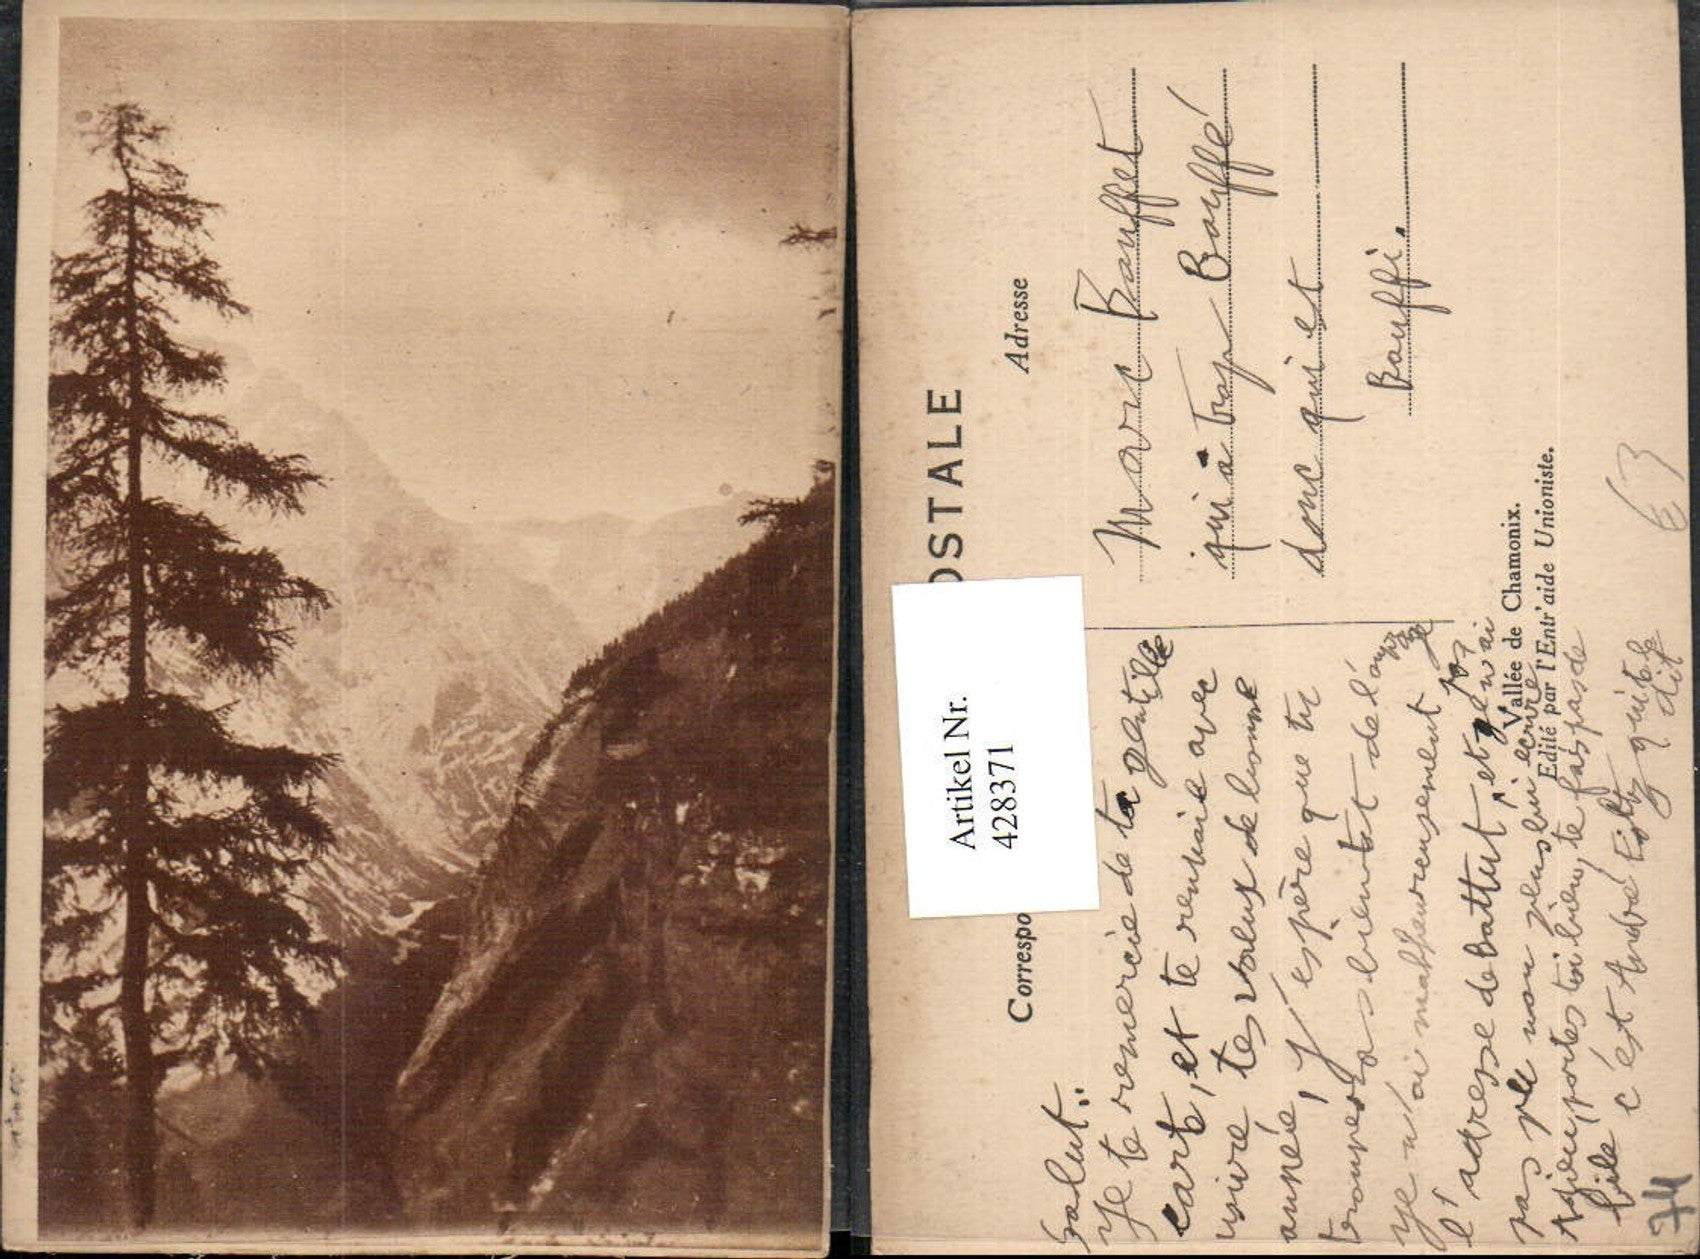 OSTALE
Correspo
Adresse
Artikel Nr.
428371
Salut.
Je te remercie de ta gentille
carte, et te renvoie avec
usure tes voeux de bonne
année, J'espère que tu
tromperas bientôt de l'
je n'ai malheureusement pas
l'adresse de Battut, et je n'ai
pas pu non plus lui écrire
Adieu, portes toi bien, te fais pas de
bile c'est André qui te
le dit
Marc Bouffet
qui a trop Bouffé
donc qui est
Bouffi.
Vallée de Chamonix.
Edité par l'Entr'aide Unioniste.
63
74